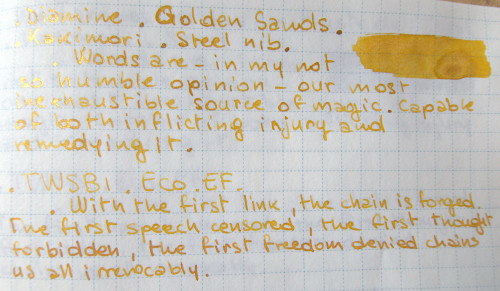 . Diamine . Golden Sands .
. Kakimori . Steel nib .
. Words are - in my not
so humble opinion - our most
inexhaustible source of magic. Capable
of both inflicting injury and
remedying it .
. TWSBI . Eco . EF .
. With the first link, the chain is forged.
The first speech censored, the first thought
forbidden, the first freedom denied chains
us all irrevocably.